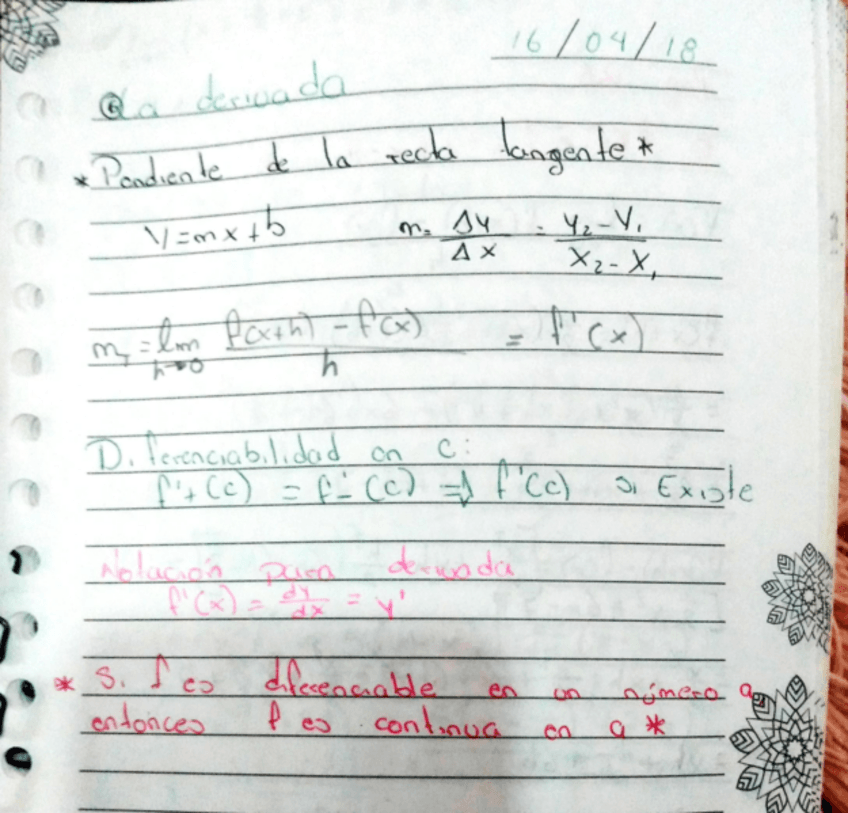 16/04/18
La derivada
* Pendiente de la recta tangente *
y = mx + b    m = Δy/Δx = y₂ - y₁ / x₂ - x₁
m_T = lim h→0 f(x+h) - f(x) / h = f'(x)
Diferenciabilidad en c:
f'₊(c) = f'₋(c) ⇒ f'(c) si Existe
Notación para derivada
f'(x) = dy/dx = y'
* Si f es diferenciable en un número a
entonces f es continua en a *